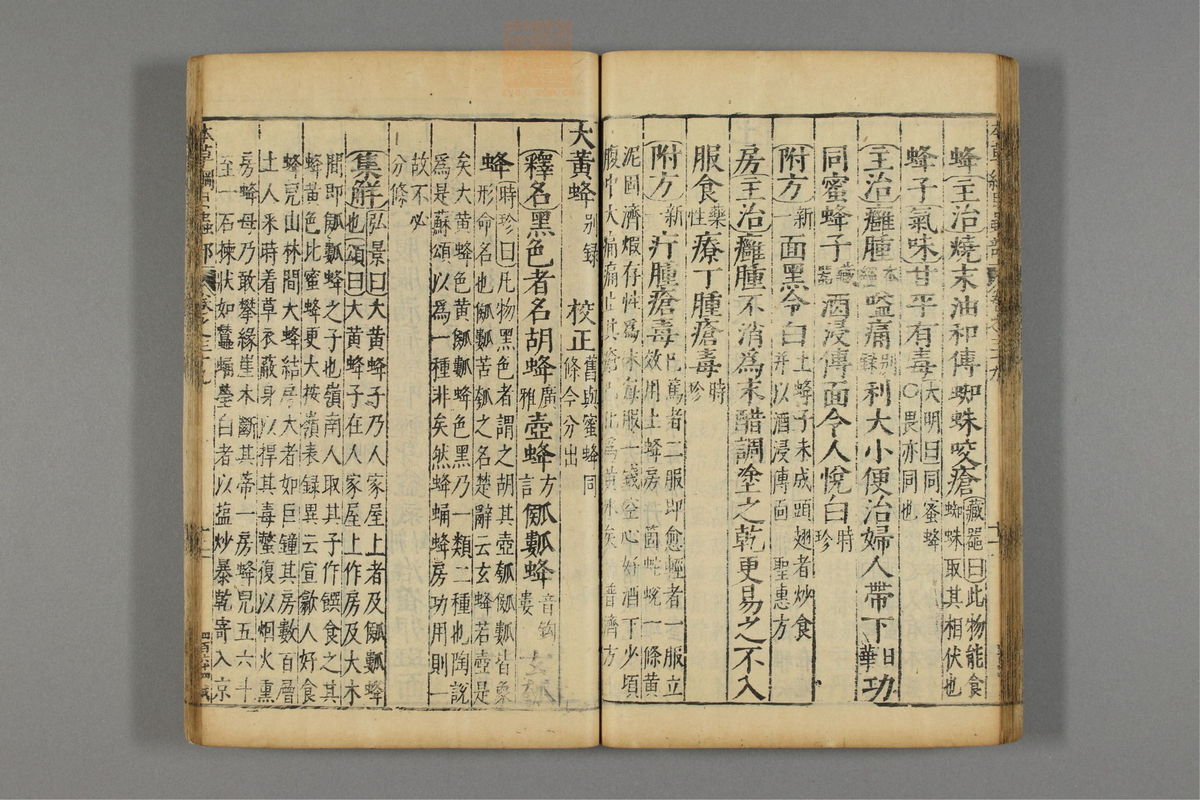 蜂主治燒末油和傅蜘蛛咬瘡藏器曰此物能食蜘蛛取其相伏也
蜂子氣味甘平有毒大明曰同蜜蜂○畏亦同也
主治癰腫本經嗌痛別錄利大小便治婦人帶下日華功
同蜜蜂子藏器酒浸傅面令人悅白時珍
附方新一面黑令白土蜂子未成頭翅者炒食并以酒浸傅面 聖惠方
房主治癰腫不消為末醋調塗之乾更易之不入
服食藥性療丁腫瘡毒時珍
附方新一疔腫瘡毒已篤者二服即愈輕者一服立效用土蜂房一箇蛇蛻一條黃
泥固濟煅存性為末每服一錢空心好酒下少頃腹中大痛痛止其瘡已化為黃水矣 普濟方
大黃蜂別錄 校正舊與蜜蜂同條今分出
釋名黑色者名胡蜂廣雅壺蜂方言㼠𤬛蜂音鉤婁玄瓠
蜂時珍曰凡物黑色者謂之胡其壺瓠㼠𤬛皆象形命名也㼠𤬛苦瓠之名楚辭云玄蜂若壺是
矣大黃蜂色黃㼠𤬛蜂色黑乃一類二種也陶說為是蘇頌以為一種非矣然蜂蛹蜂房功用則一
故不必分條
集解弘景曰大黃蜂子乃人家屋上者及㼠𤬛蜂也頌曰大黃蜂子在人家屋上作房及大木
間即㼠𤬛蜂之子也嶺南人取其子作饌食之其蜂黃色比蜜蜂更大按嶺表錄異云宣歙人好食
蜂兒山林間大蜂結房大者如巨鐘其房數百層土人采時着草衣蔽身以捍其毒螫復以烟火熏
房蜂母乃敢攀緣崖木斷其蒂一房蜂兒五六斗至一石揀狀如蠶蛹瑩白者以塩炒暴乾寄入京
本草綱目蟲部 卷之三十九